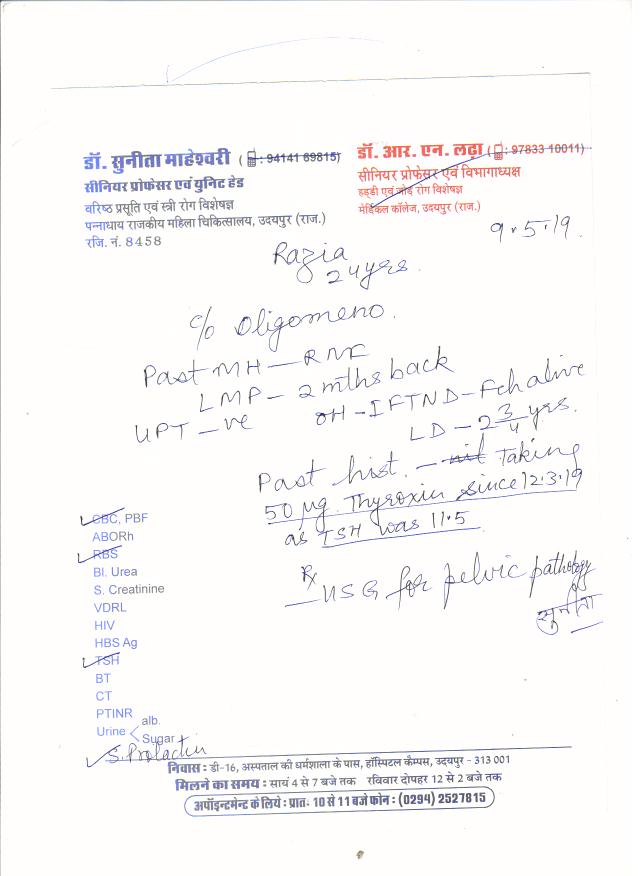 डॉ. सुनीता माहेश्वरी ( : 94141 69815)
सीनियर प्रोफेसर एवं युनिट हेड
वरिष्ठ प्रसूति एवं स्त्री रोग विशेषज्ञ
पन्नाधाय राजकीय महिला चिकित्सालय, उदयपुर (राज.)
रजि. नं. 8458
डॉ. आर. एन. लढ़ा ( : 97833 10011)
सीनियर प्रोफेसर एवं विभागाध्यक्ष
हड्डी एवं जोड़ रोग विशेषज्ञ
मेडिकल कॉलेज, उदयपुर (राज.)
9.5.19
Razia
24 yrs.
c/o Oligomeno.
Past MH - RNF
LMP - 2 mths back
UPT - ve
OH - IFTND - Fch alive
LD - 2 3/4 yrs.
Past hist. - nil Taking
50 µg. Thyroxin since 12.3.19
as TSH was 11.5
Rx
USG for pelvic pathology
सुनीता
CBC, PBF
ABORh
RBS
Bl. Urea
S. Creatinine
VDRL
HIV
HBS Ag
TSH
BT
CT
PTINR
Urine < alb.
Sugar
S. Prolactin
निवास : डी-16, अस्पताल की धर्मशाला के पास, हॉस्पिटल कैम्पस, उदयपुर - 313 001
मिलने का समय : सायं 4 से 7 बजे तक रविवार दोपहर 12 से 2 बजे तक
अपॉइन्टमेन्ट के लिये : प्रातः 10 से 11 बजे फोन : (0294) 2527815